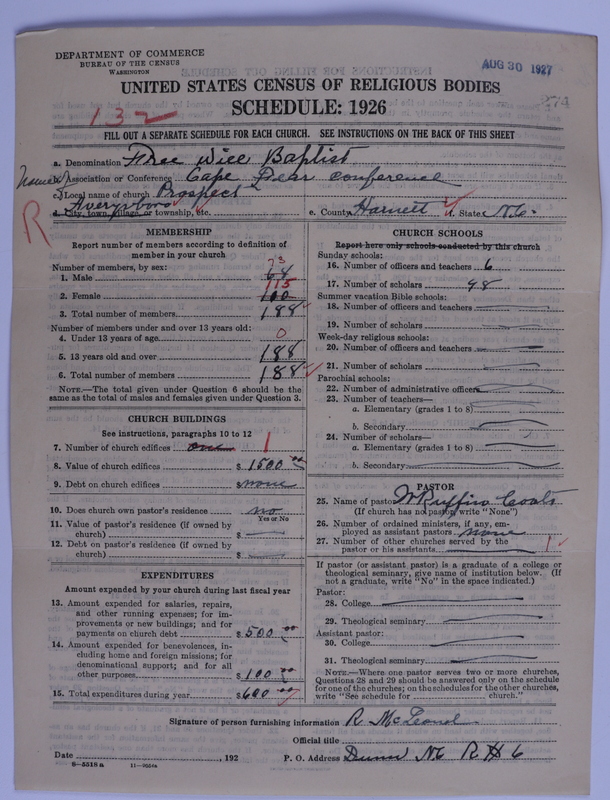 DEPARTMENT OF COMMERCE
BUREAU OF THE CENSUS
WASHINGTON
AUG 30 1927
274
UNITED STATES CENSUS OF RELIGIOUS BODIES
SCHEDULE: 1926
132
FILL OUT A SEPARATE SCHEDULE FOR EACH CHURCH. SEE INSTRUCTIONS ON THE BACK OF THIS SHEET
a. Denomination Free Will Baptist
b. Association or Conference Cape Fear conference
c. Local name of church Prospect
R
d. City, town, village, or township, etc. Averysboro e. County Harnett f. State N.C.
MEMBERSHIP
Report number of members according to definition of
member in your church
Number of members, by sex:
1. Male 68 73
2. Female 100 115
3. Total number of members 188
Number of members under and over 13 years old:
4. Under 13 years of age 0
5. 13 years old and over 188
6. Total number of members 188
NOTE.—The total given under Question 6 should be the
same as the total of males and females given under Question 3.
CHURCH BUILDINGS
See instructions, paragraphs 10 to 12
7. Number of church edifices one 1
8. Value of church edifices $ 1500 00
9. Debt on church edifices $ none
10. Does church own pastor's residence no
Yes or No
11. Value of pastor's residence (if owned by
church) $
12. Debt on pastor's residence (if owned by
church) $
EXPENDITURES
Amount expended by your church during last fiscal year
13. Amount expended for salaries, repairs,
and other running expenses; for im-
provements or new buildings; and for
payments on church debt $ 500 00
14. Amount expended for benevolences, in-
cluding home and foreign missions; for
denominational support; and for all
other purposes $ 100 00
15. Total expenditures during year $ 600 00
CHURCH SCHOOLS
Report here only schools conducted by this church
Sunday schools:
16. Number of officers and teachers 6
17. Number of scholars 98
Summer vacation Bible schools:
18. Number of officers and teachers
19. Number of scholars
Week-day religious schools:
20. Number of officers and teachers
21. Number of scholars
Parochial schools:
22. Number of administrative officers
23. Number of teachers—
a. Elementary (grades 1 to 8)
b. Secondary
24. Number of scholars—
a. Elementary (grades 1 to 8)
b. Secondary
PASTOR
25. Name of pastor W Ruffin Coats
(If church has no pastor, write "None")
26. Number of ordained ministers, if any, em-
ployed as assistant pastors none
27. Number of other churches served by the
pastor or his assistants 1
If pastor (or assistant pastor) is a graduate of a college or
theological seminary, give name of institution below. (If
not a graduate, write "No" in the space indicated.)
Pastor:
28. College
29. Theological seminary
Assistant pastor:
30. College
31. Theological seminary
NOTE.—Where one pastor serves two or more churches,
Questions 28 and 29 should be answered only on the schedule
for one of the churches; on the schedules for the other churches,
write "See schedule for church."
Signature of person furnishing information R McLeod
Official title
Date , 192 P. O. Address Dunn NC R # 6
8-5518 a